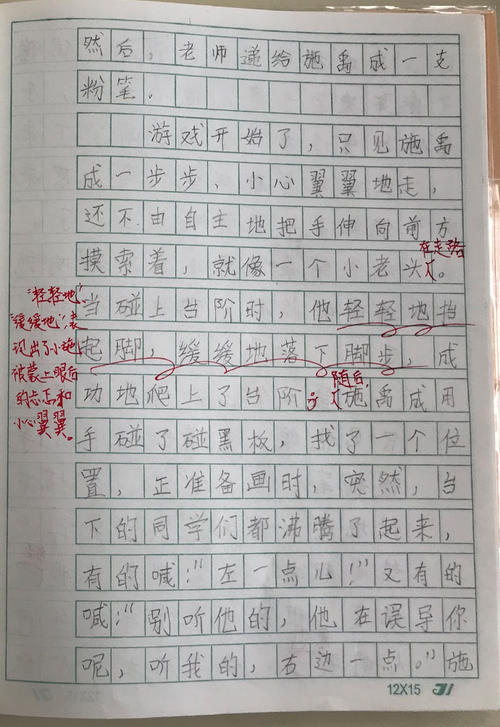 然后，老师递给施禹成一支
粉笔。
游戏开始了，只见施禹
成一步步，小心翼翼地走，
还不由自主地把手伸向前方
摸索着，就像一个小老头
在走路
。
当碰上台阶时，他轻轻地抬
起脚，缓缓地落下脚步，成
功地爬上了台阶，
随后，
施禹成用
手碰了碰黑板，找了一个位
置，正准备画时，突然，台
下的同学们都沸腾了起来，
有的喊：“左一点儿！”又有的
喊：“别听他的，他在误导你
呢，听我的，右边一点。”施
“轻轻地”
“缓缓地”表
现出了小施
被蒙上眼后
的忐忑和
小心翼翼。
12X15